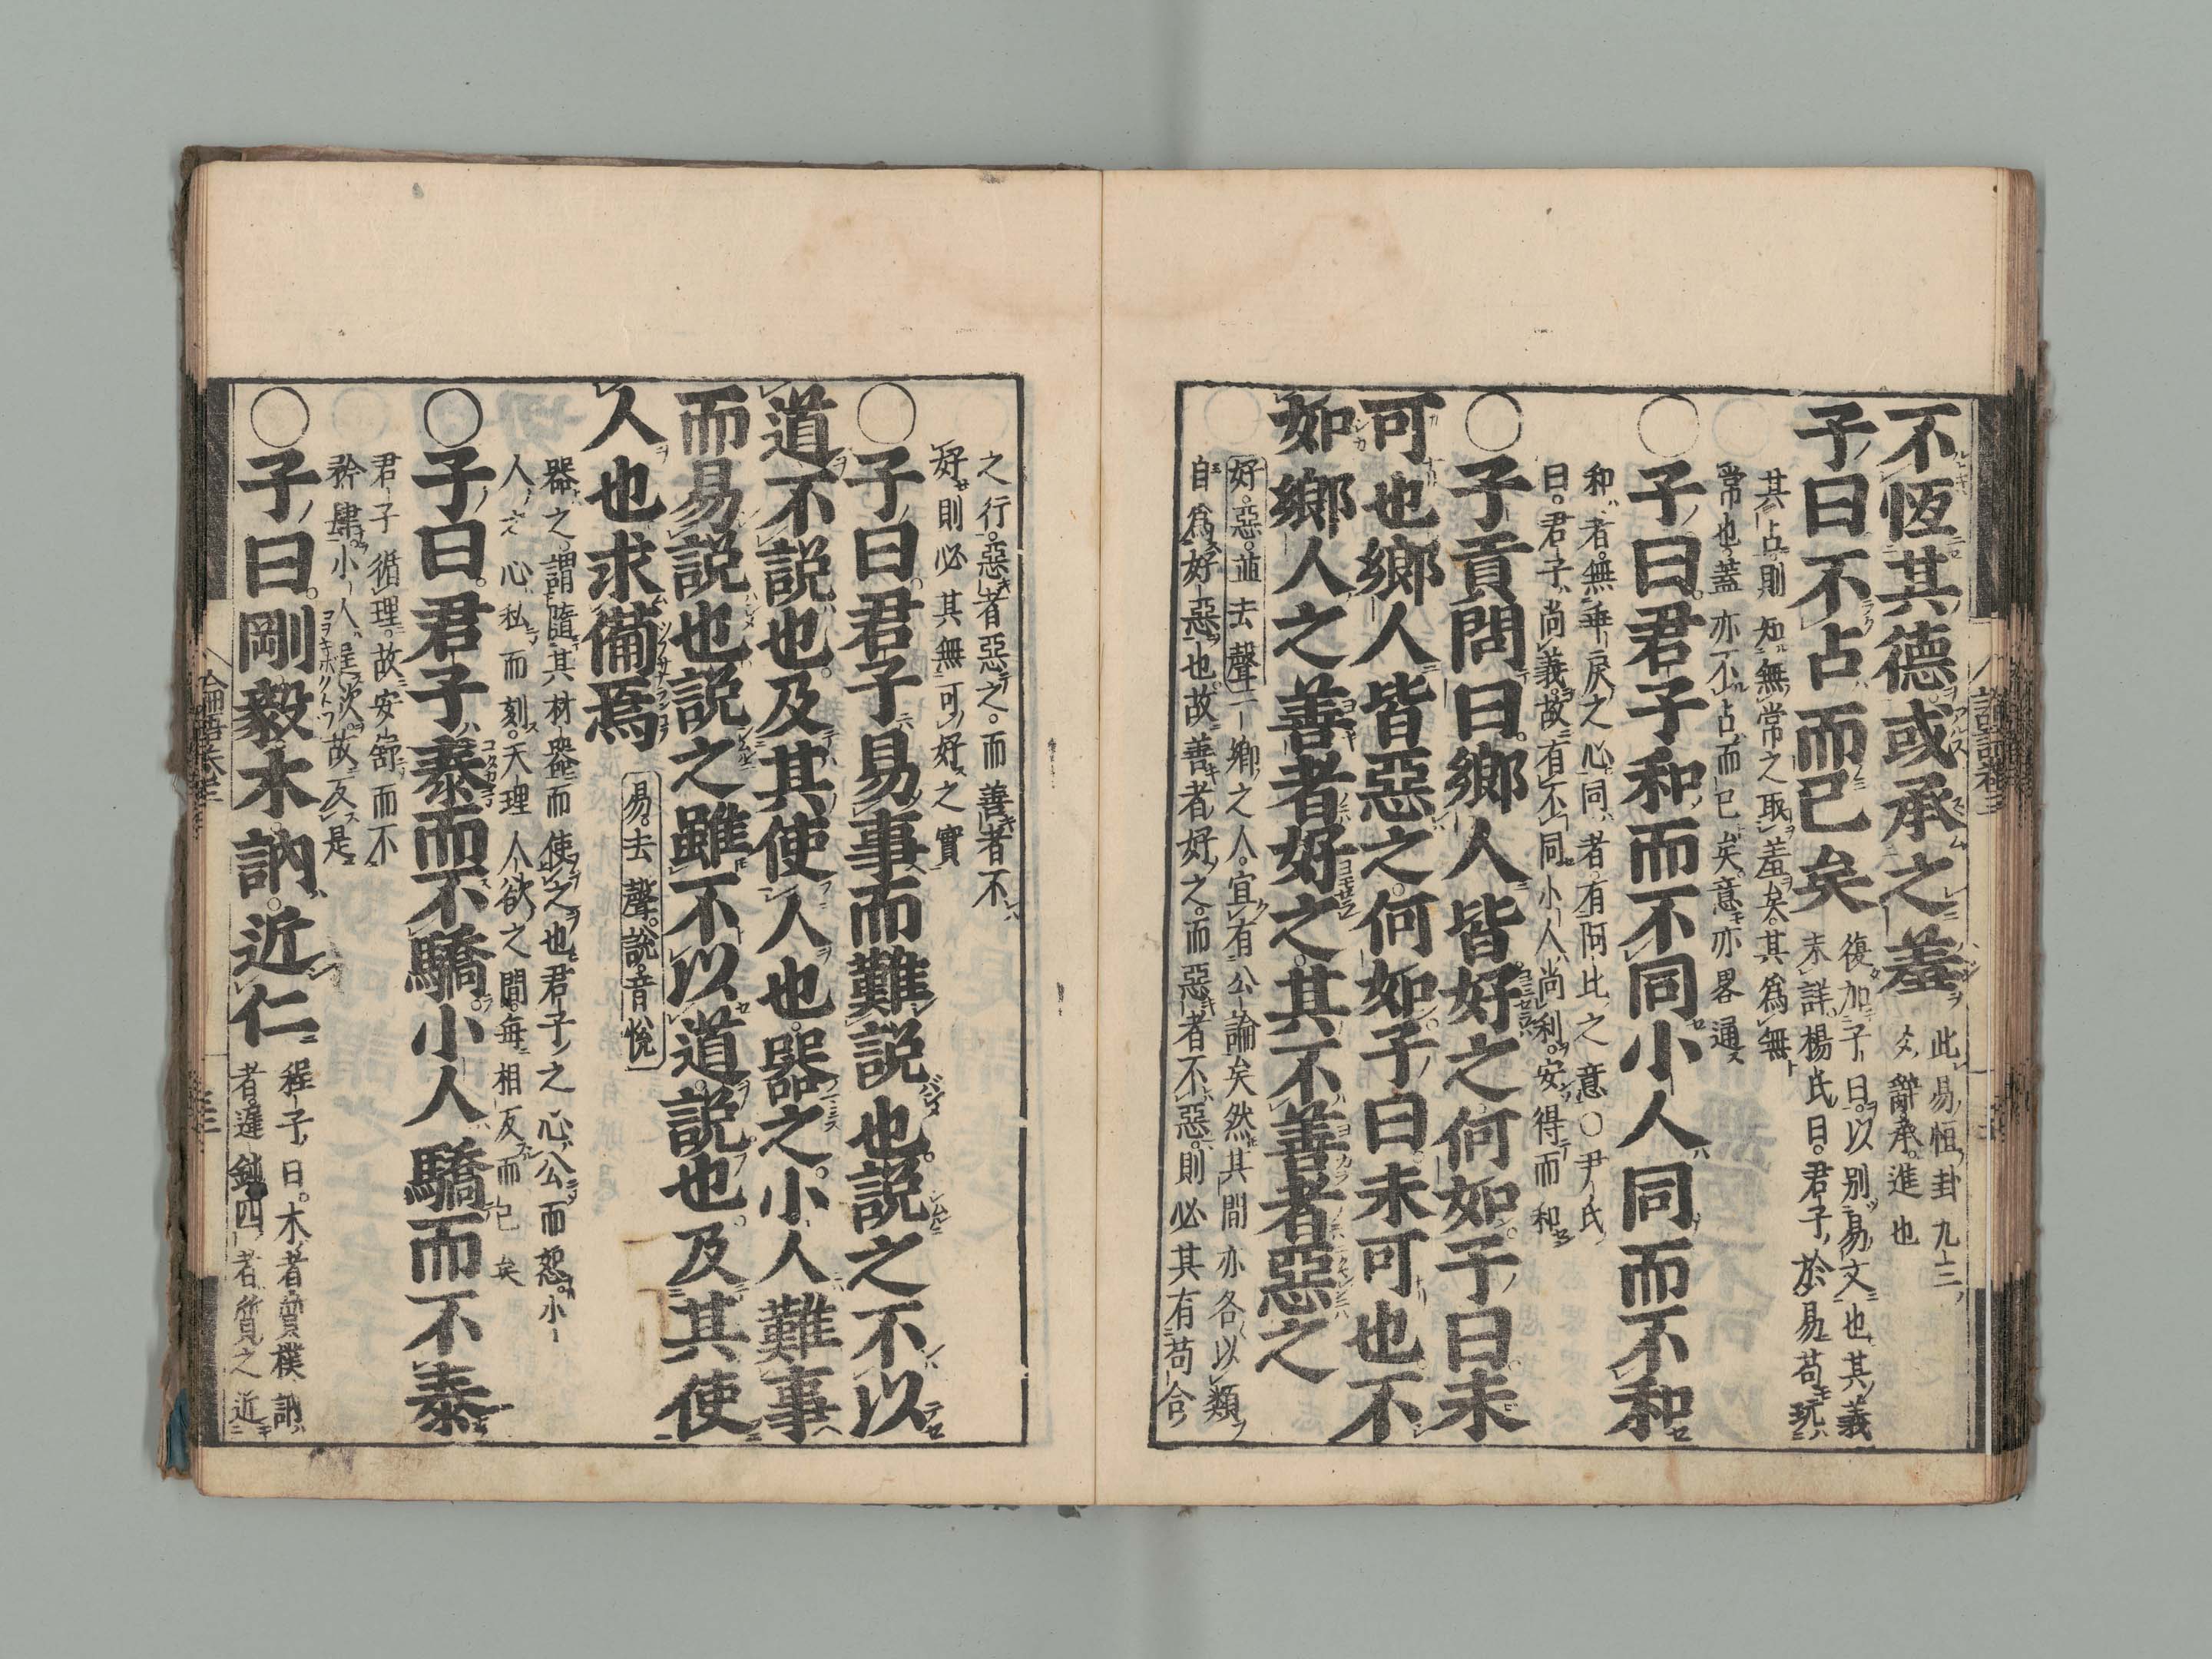 不恆其德或承之羞
此易恒卦九三
爻辭承進也
子曰不占而已矣
復加子曰以別易文也其義
未詳楊氏曰君子於易苟玩
其占則知無常之取羞矣其爲無
常也蓋亦不占而已矣意亦畧通
○子曰君子和而不同小人同而不和
和者無乖戾之心同者有阿比之意○尹氏
曰君子尚義故有不同小人尚利安得而和
○子貢問曰鄉人皆好之何如子曰未
可也鄉人皆惡之何如子曰未可也不
如鄉人之善者好之其不善者惡之
好惡並去聲一鄉之人宜有公論矣然其間亦各以類
自爲好惡也故善者好之而惡者不惡則必其有苟合
之行惡者惡之而善者不
好則必其無可好之實
○子曰君子易事而難説也説之不以
道不説也及其使人也器之小人難事
而易説也説之雖不以道説也及其使
人也求備焉
易去聲說音悅
器之謂隨其材器而使之也君子之心公而恕小
人之心私而刻天理人欲之間每相反而已矣
○子曰君子泰而不驕小人驕而不泰
君子循理故安舒而不
矜肆小人逞欲故反是
○子曰剛毅木訥近仁
程子曰木者質樸訥
者遲鈍四者質之近